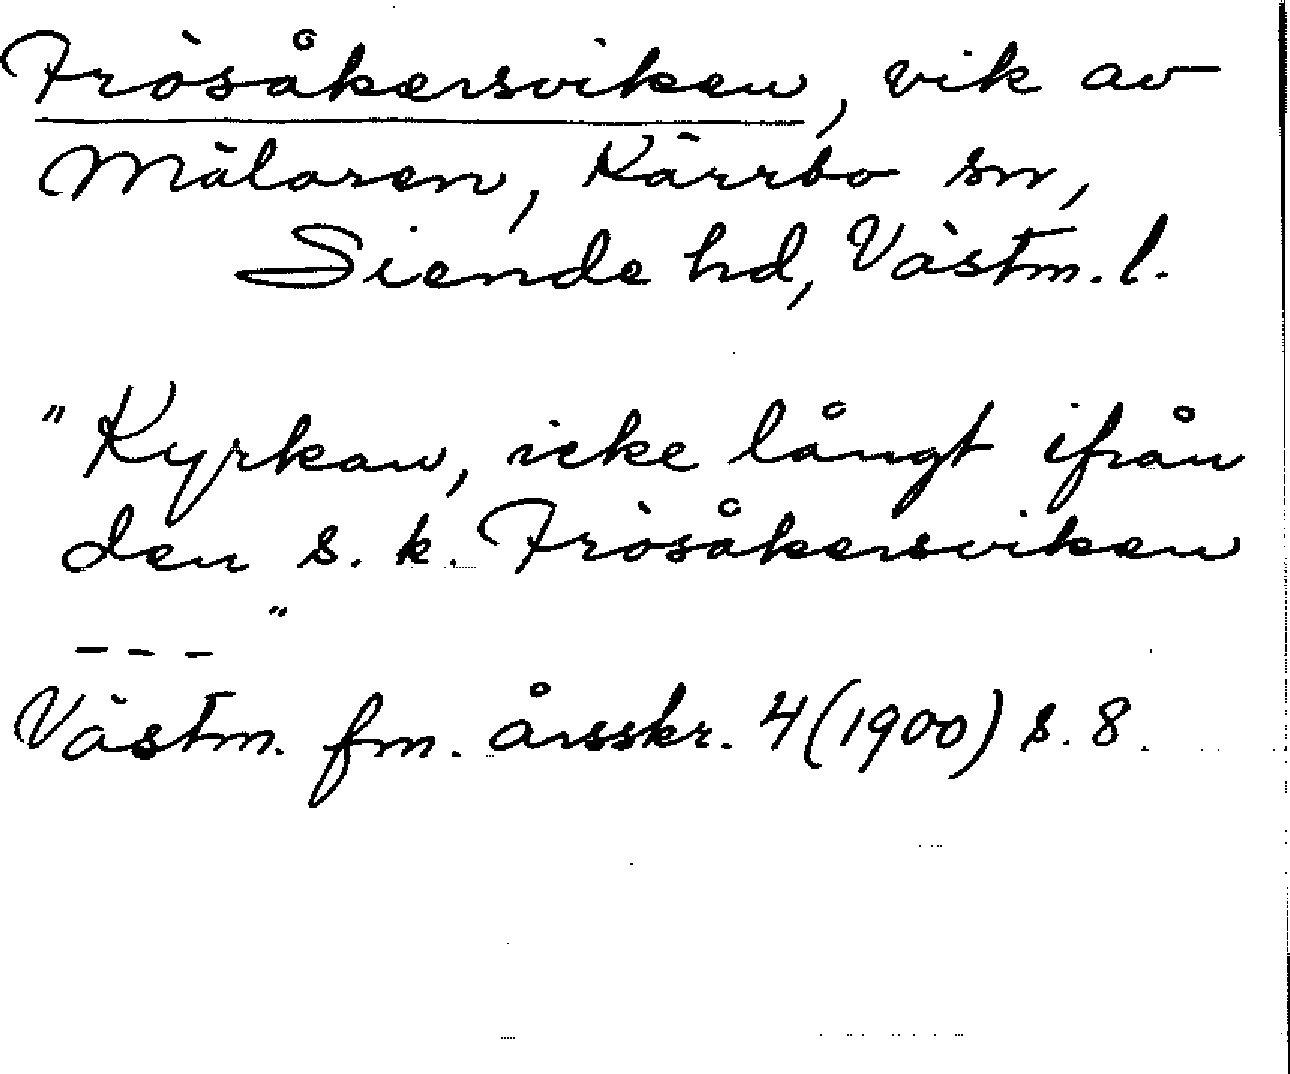 Frösåkersviken, vik av
Mälaren, Kärrbo sn,
Siende hd, Västm. l.
"Kyrkan, icke långt ifrån
den s. k. Frösåkersviken
- - - "
Västm. fm. årsskr. 4 (1900) s. 8.